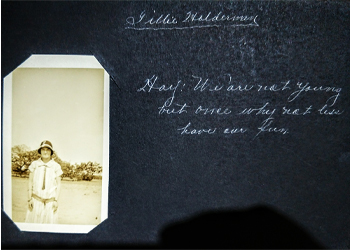 Tillie Halderman
Hay: We are not young
but once why not less
have our fun